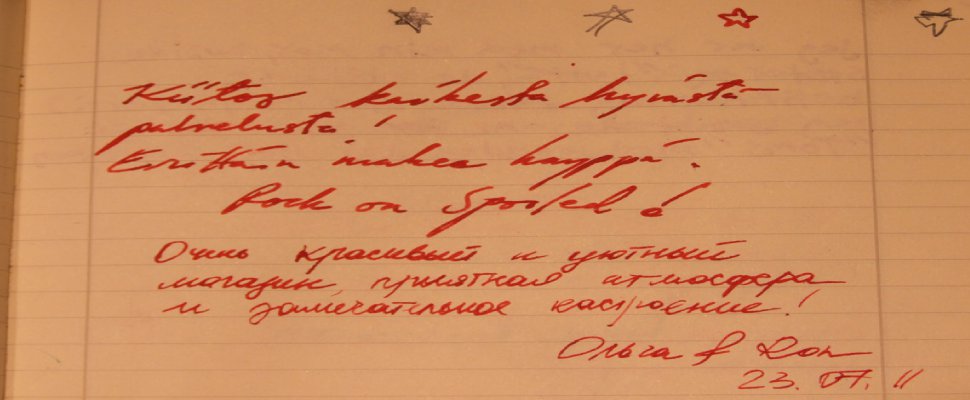 Kiitos kaikesta hyvästä
palvelusta!
Erittäin makea kauppa.
Rock on Spoiled!
Очень красивый и уютный
магазин, приятная атмосфера
и замечательное настроение!
Ольга & Ron
23. VI. 11